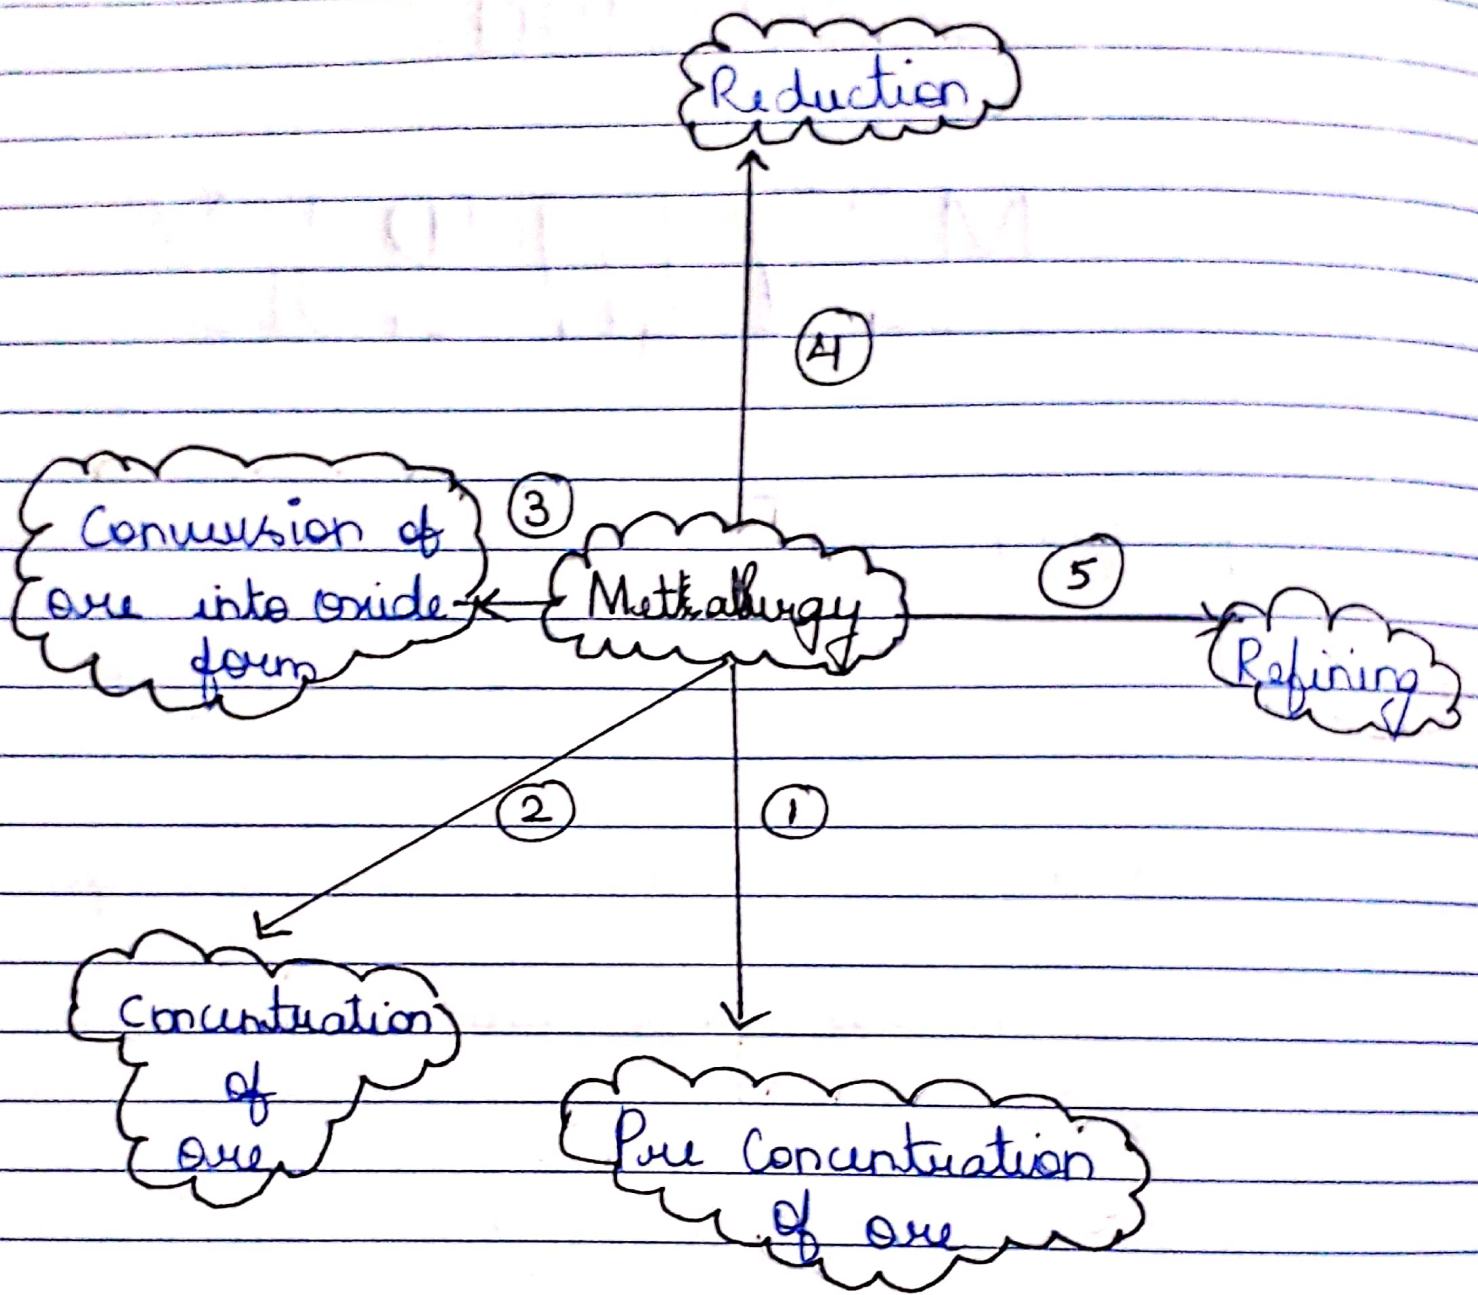 Reduction
4
3
Conversion of
ore into oxide
form
Metallurgy
5
Refining
2
1
Concentration
of
ore
Pre Concentration
of ore